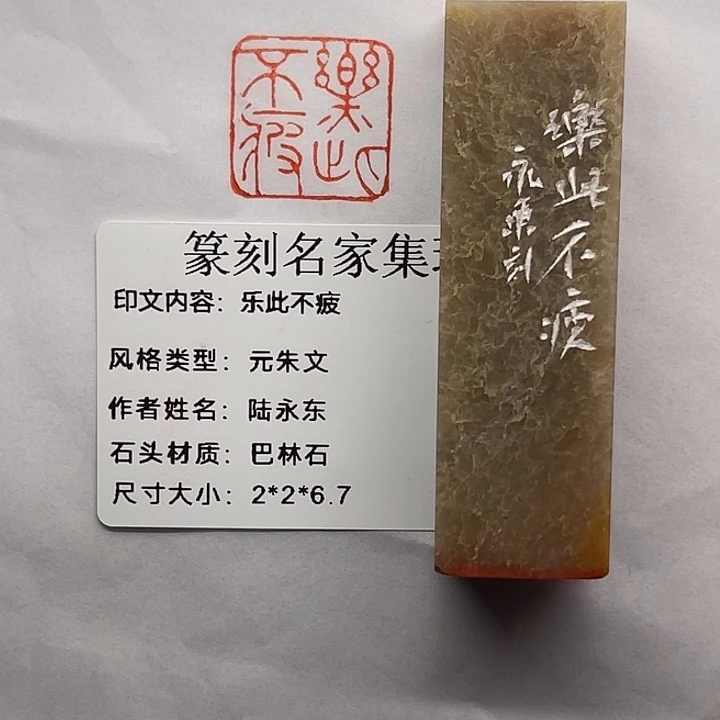 樂此
不疲
篆刻名家集
印文内容：乐此不疲
风格类型：元朱文
作者姓名：陆永东
石头材质：巴林石
尺寸大小：2*2*6.7
樂此不疲
永東刻